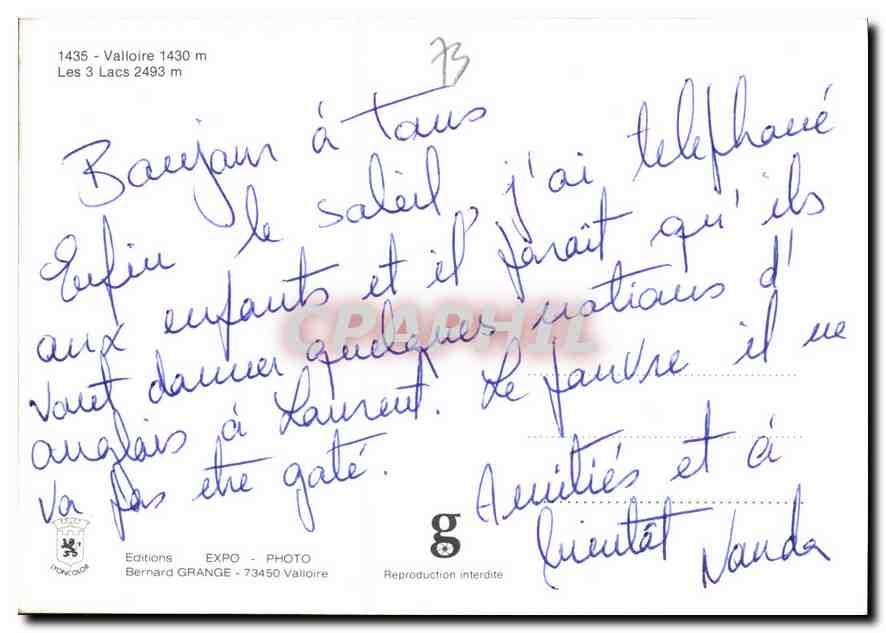 1435 - Valloire 1430 m
Les 3 Lacs 2493 m
73
Bonjour à tous
Enfin le soleil, j'ai telephoné
aux enfants et il paraît qu'ils
vont donner quelques notions d'
anglais à Laurent. Le pauvre il ne
va pas etre gaté.
Amitiés et à
bientôt Nanda
CPAPHIL
LYONCOLOR
Editions EXPO - PHOTO
Bernard GRANGE - 73450 Valloire
g
Reproduction interdite